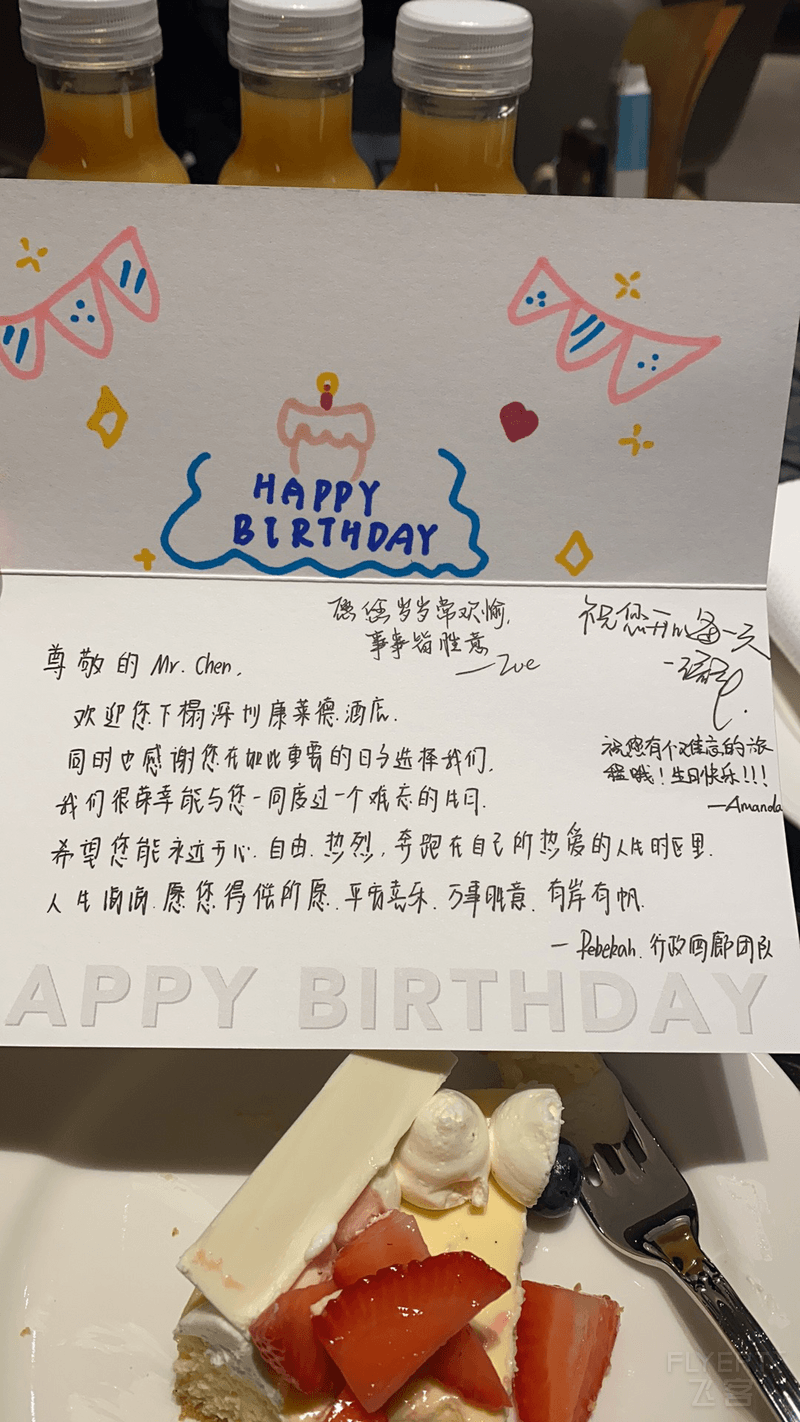 HAPPY
BIRTHDAY
愿您岁岁常欢愉,
事事皆胜意
—Zoe
祝您开心每一天
尊敬的 Mr. Chen,
欢迎您下榻深圳康莱德酒店.
同时也感谢您在如此重要的日子选择我们,
我们很荣幸能与您一同度过一个难忘的生日.
希望您能永远开心.自由.热烈,奔跑在自己所热爱的人生时区里.
人生海海.愿您得偿所愿.平安喜乐.万事胜意.有岸有帆.
— Rebekah.行政酒廊团队
祝您有个难忘的旅
程哦!生日快乐!!!
—Amanda
APPY BIRTHDAY
FLYERT
飞客